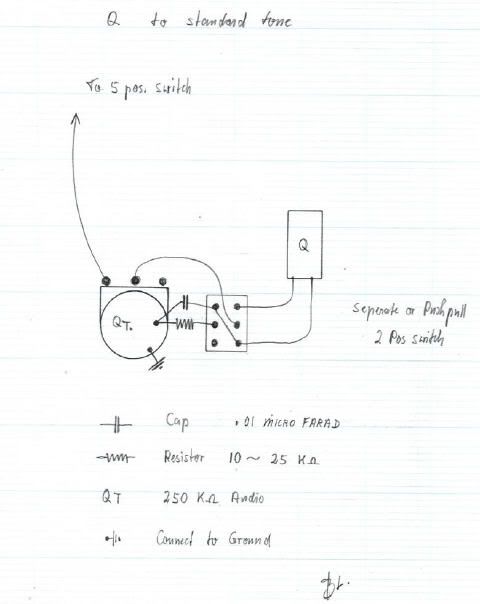 Q to standard tone
To 5 pos. switch
Q
QT.
Seperate or Push pull
2 Pos switch
Cap .01 MICRO FARAD
Resister 10 ~ 25 KΩ
QT 250 KΩ Audio
Connect to Ground